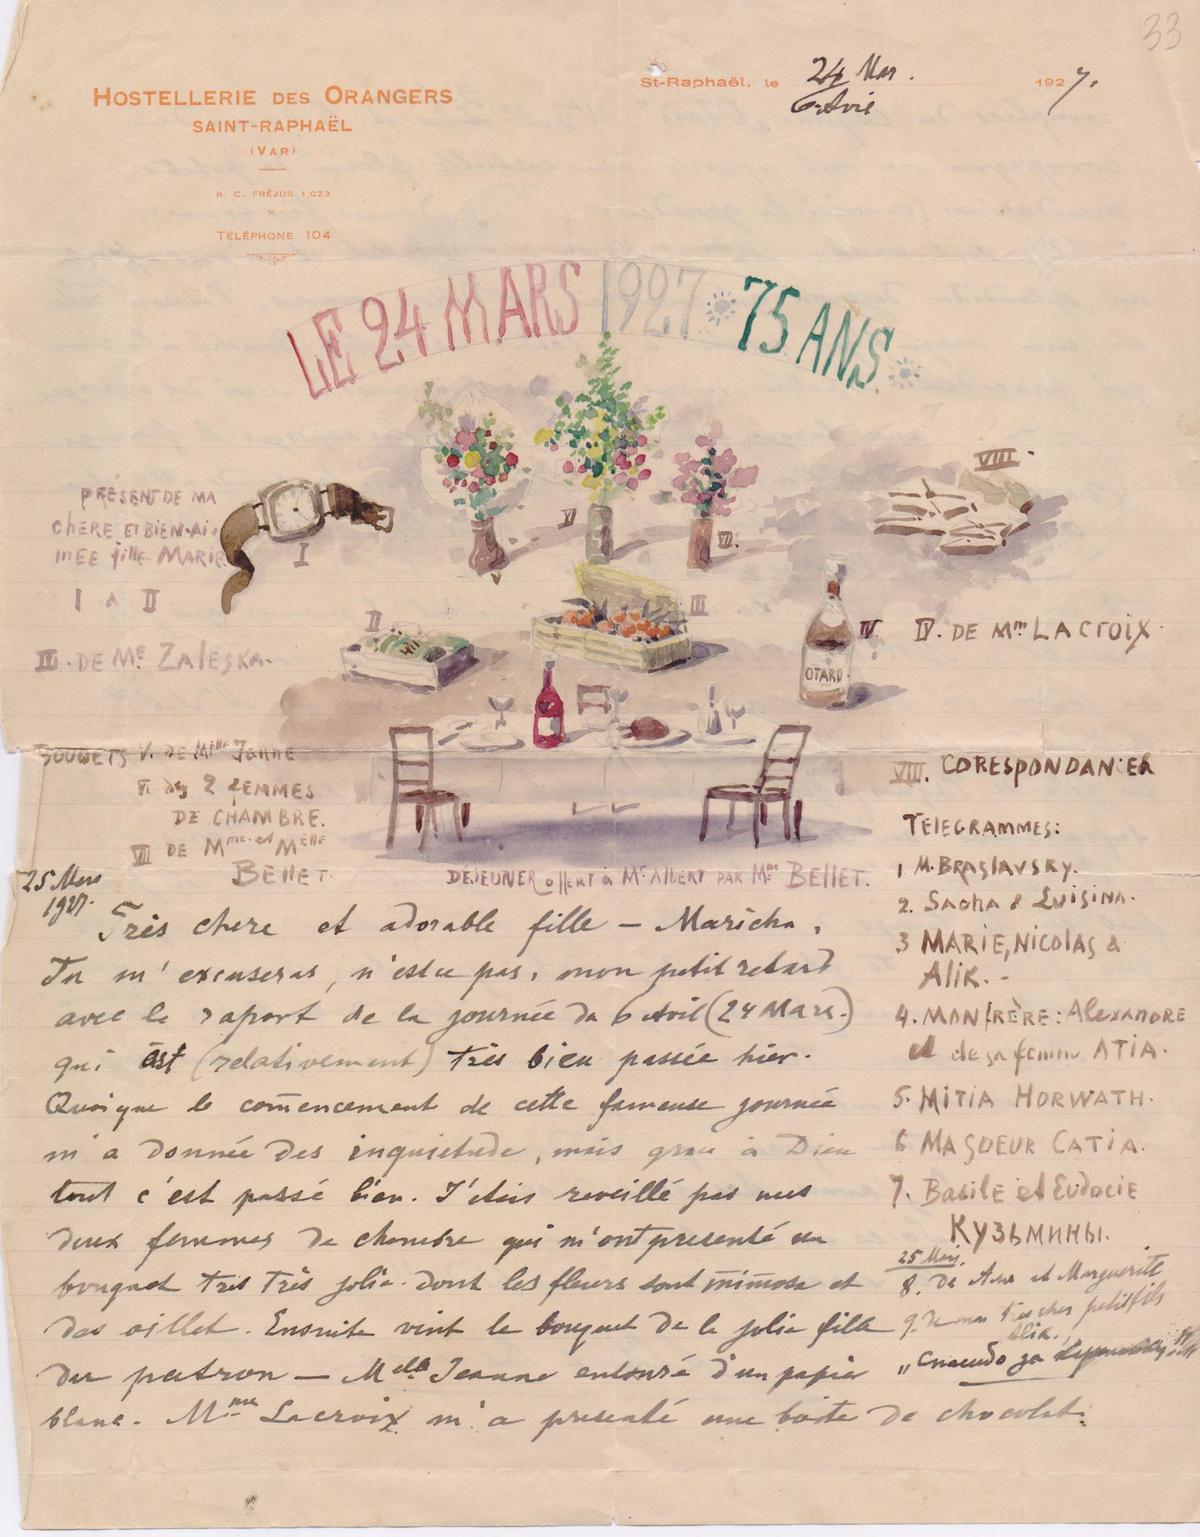 33
HOSTELLERIE DES ORANGERS
SAINT-RAPHAËL
(VAR)
R. C. FRÉJUS 1.023
TÉLÉPHONE 104
St-Raphaël, le 24 Mar. 1927.
6 Avril
LE 24 MARS 1927 75 ANS
PRÉSENT DE MA
CHERE ET BIEN-AI-
MEE fille MARIE
I A II
III. DE Me ZALESKA.
I
II
III
IV
V
VI.
VIII.
OTARD
IV. DE Mme LACROIX.
BOUQETS V. DE Melle JANNE
VI. des 2 FEMMES
DE CHAMBRE.
VII DE Mme et Melle
BELLET.
DEJEUNER offert à Mr ALBERT PAR Mme BELLET.
VIII. CORESPONDANCER
TELEGRAMMES:
1 M. BRASLAVSKY.
2. SACHA & LUISINA.
3 MARIE, NICOLAS &
ALIK. -
4. MON FRÈRE: ALEXANDRE
et de sa femme ATIA.
5. MITIA HORWATH.
6 MA SOEUR CATIA.
7. Basile et Eudocie
КУЗЬМИНЫ.
25 Mars.
8. De et Marguerite
9. De mon très cher petit fils
Alik.
"Спасибо за
25 Mars
1927.
Très chere et adorable fille — Maricha,
Tu m'excuseras, n'estce pas, mon petit retard
avec le raport de la journée du 6 Avril (24 Mars.)
qui est (relativement) très bien passée hier.
Quoique le comencement de cette fameuse journée
m'a donnée des inquietude, mais grace à Dieu
tout c'est passé bien. J'etais reveillé pas nus
deux femmes de chambre qui m'ont presenté un
bouquet tres très jolie. dont les fleurs sont mimosa et
des oillet. Ensuite vint le bouquet de la jolie fille
du patron — Melle Jeanne entouré d'un papier
blanc. Mme Lacroix m'a presenté une boite de chocolat.